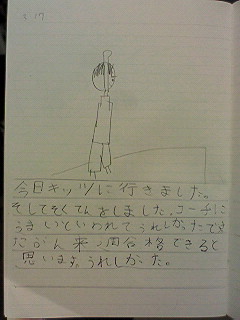 2 17
今日キッツに行きました。
そしてそくてんをしました。コーチに
うまいといわれてうれしかったです
たぶん来週合格できると
思います。うれしかった。